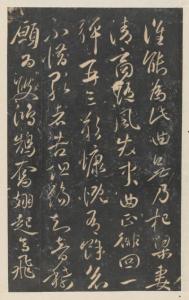 誰能為此曲無乃杞梁妻
清商隨風發中曲正徘徊一
彈再三歎慷慨有餘哀
不惜歌者苦但傷知音稀
願為雙鴻鵠奮翅起高飛